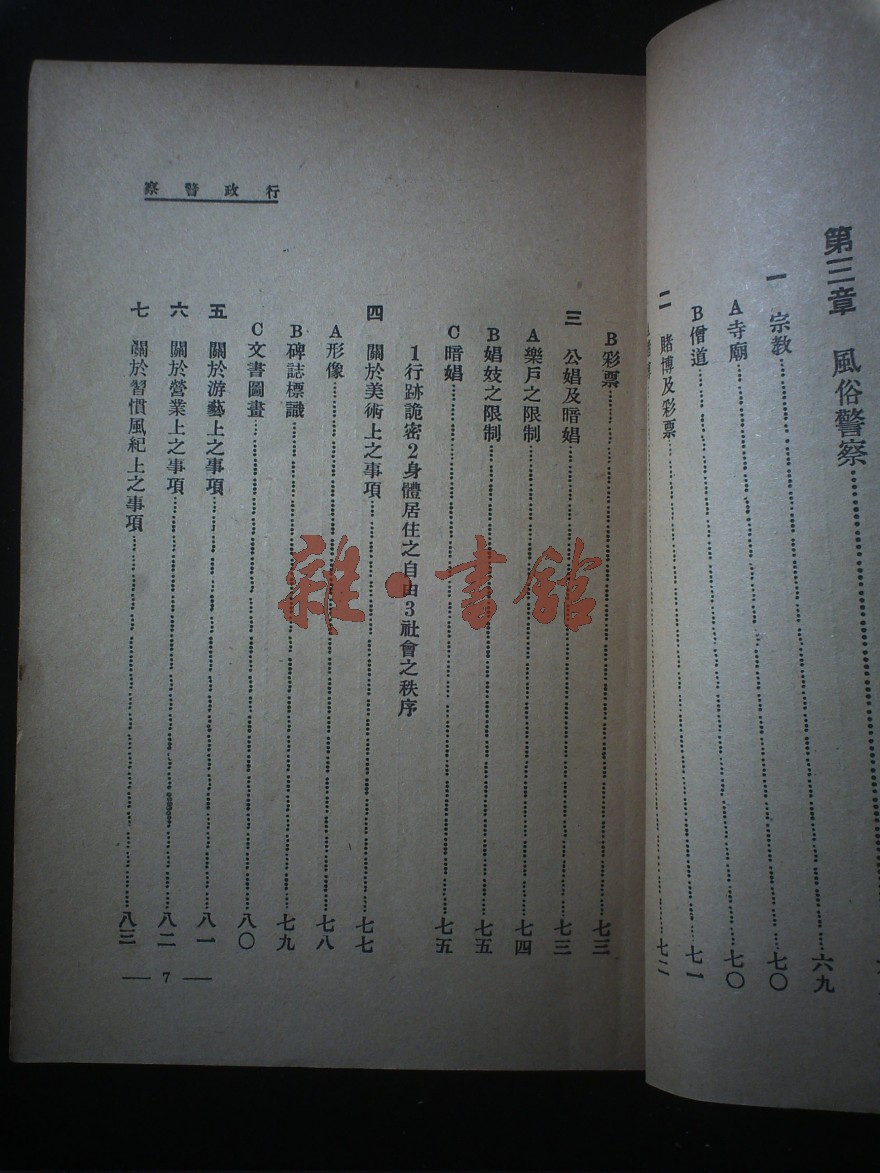 第三章　風俗警察…………六九
一　宗教…………七〇
A寺廟…………七〇
B僧道…………七一
二　賭博及彩票…………七二
行政警察
B彩票…………七三
三　公娼及暗娼…………七三
A樂戶之限制…………七四
B娼妓之限制…………七五
C暗娼…………七五
1行跡詭密2身體居住之自由3社會之秩序
四　關於美術上之事項…………七七
A形像…………七八
B碑誌標識…………七九
C文書圖畫…………八〇
五　關於游藝上之事項…………八一
六　關於營業上之事項…………八二
七　關於習慣風紀上之事項…………八三
— 7 —
雜·書館